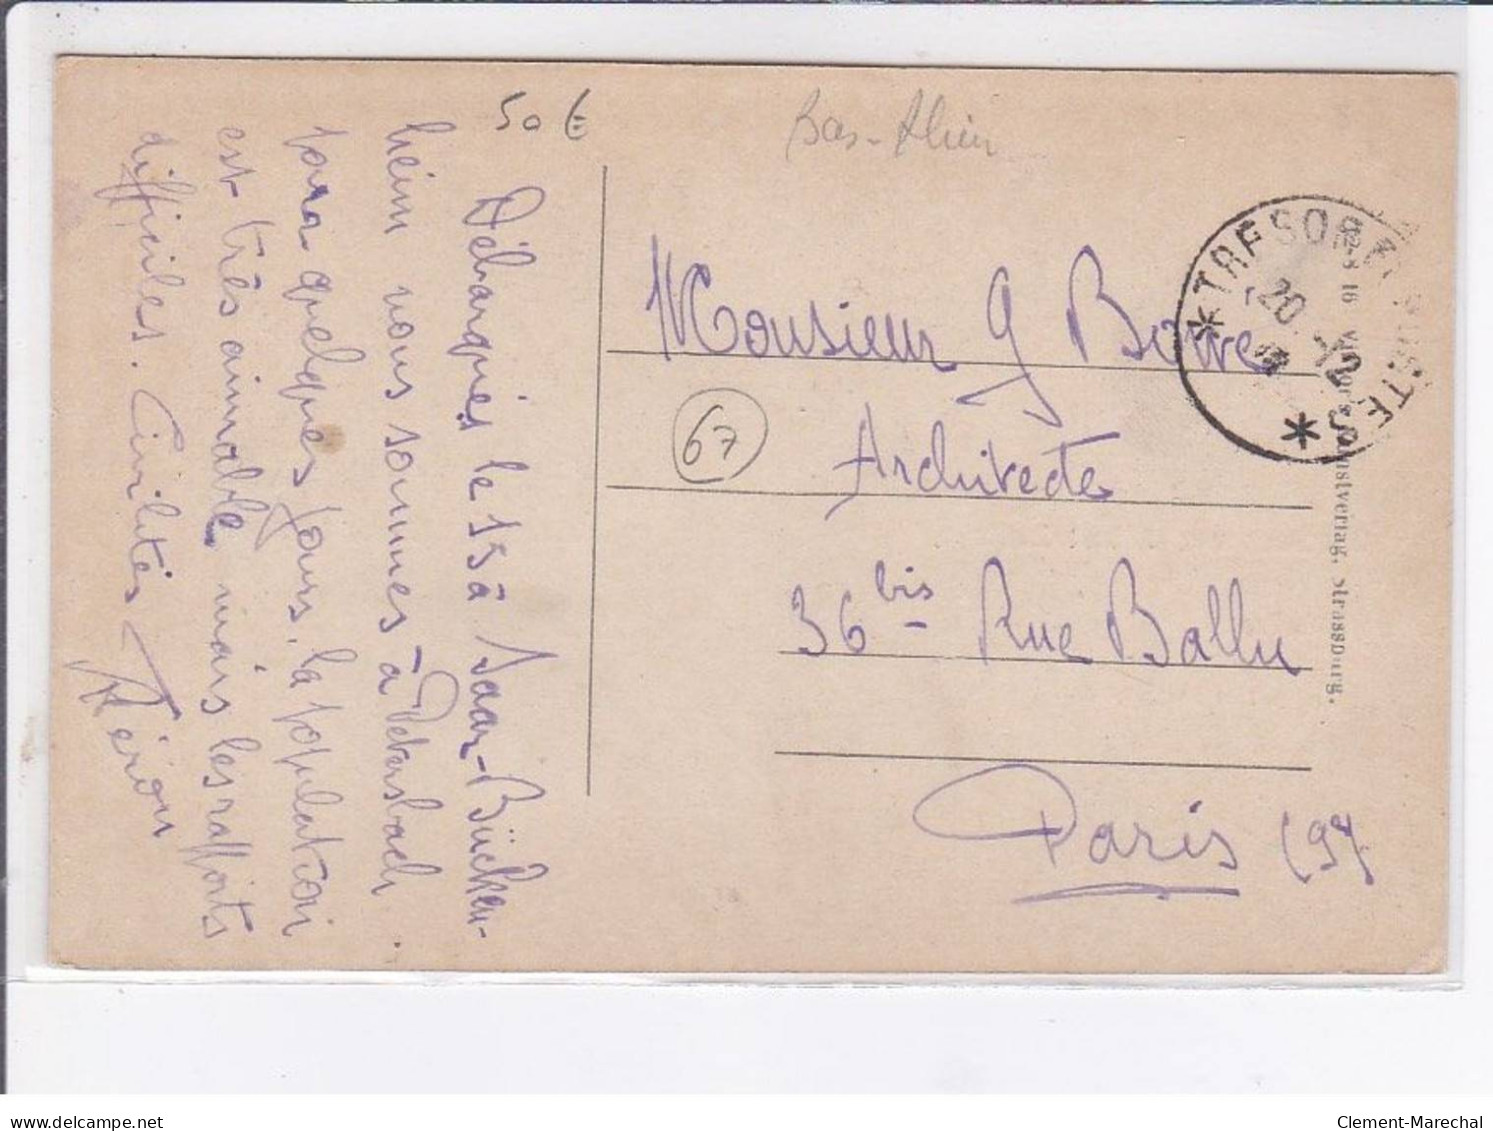 50 €
Bas-Rhin
Débarqués le 15 à Saar-Bücken-
heim nous sommes à Petersbach
pour quelques jours. la population
est très aimable mais les rapports
difficiles. Civilités
Monsieur G
Architecte
36 bis Rue Ballu
Paris (9e)
67
* TRESOR ET POSTES *
20 12
Kunstverlag, Strassburg.
delcampe.net
Clement-Marechal